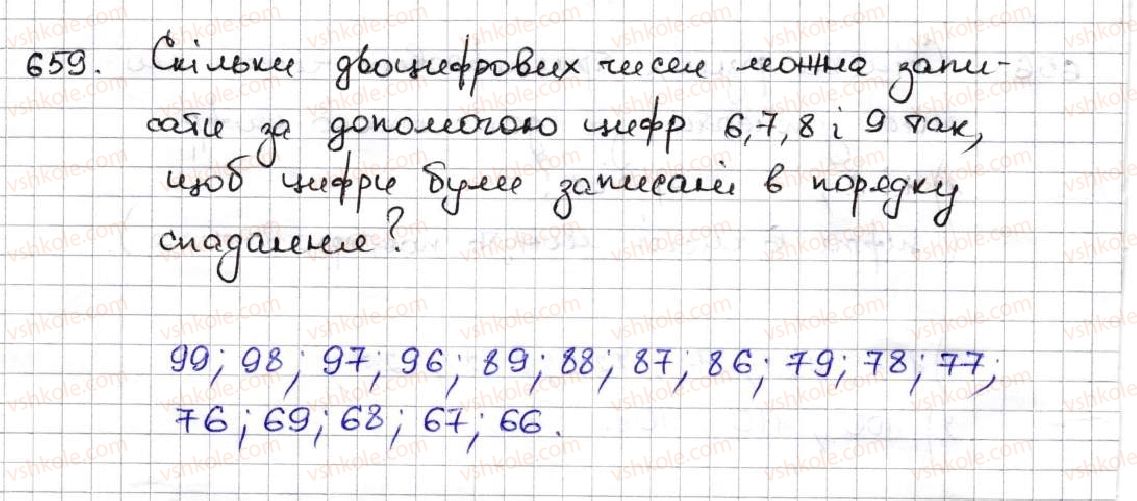 659. Скільки двоцифрових чисел можна запи-
сати за допомогою цифр 6, 7, 8 і 9 так,
щоб цифри були записані в порядку
спадання?
99; 98; 97; 96; 89; 88; 87; 86; 79; 78; 77;
76; 69; 68; 67; 66.